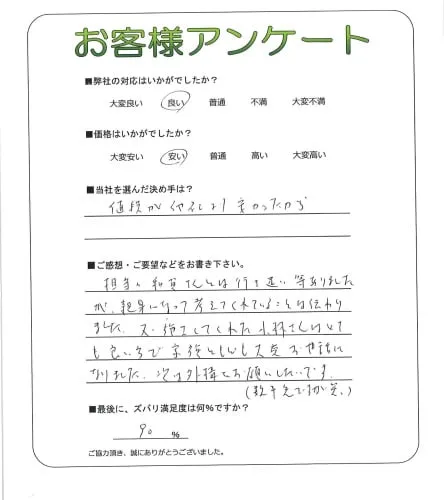 お客様アンケート
■弊社の対応はいかがでしたか？
大変良い 良い 普通 不満 大変不満
■価格はいかがでしたか？
大変安い 安い 普通 高い 大変高い
■当社を選んだ決め手は？
値段が他社より安かったから
■ご感想・ご要望などをお書き下さい。
担当の和賀さんとは行き違い等ありました
が、親身になって考えてくれていることは伝わり
ました。又、施工してくれた小林さんはとて
も良い方で家族ともども大変お世話に
なりました。次は外構でお願いしたいです。
■最後に、ズバリ満足度は何％ですか？
90 ％
ご協力頂き、誠にありがとうございました。